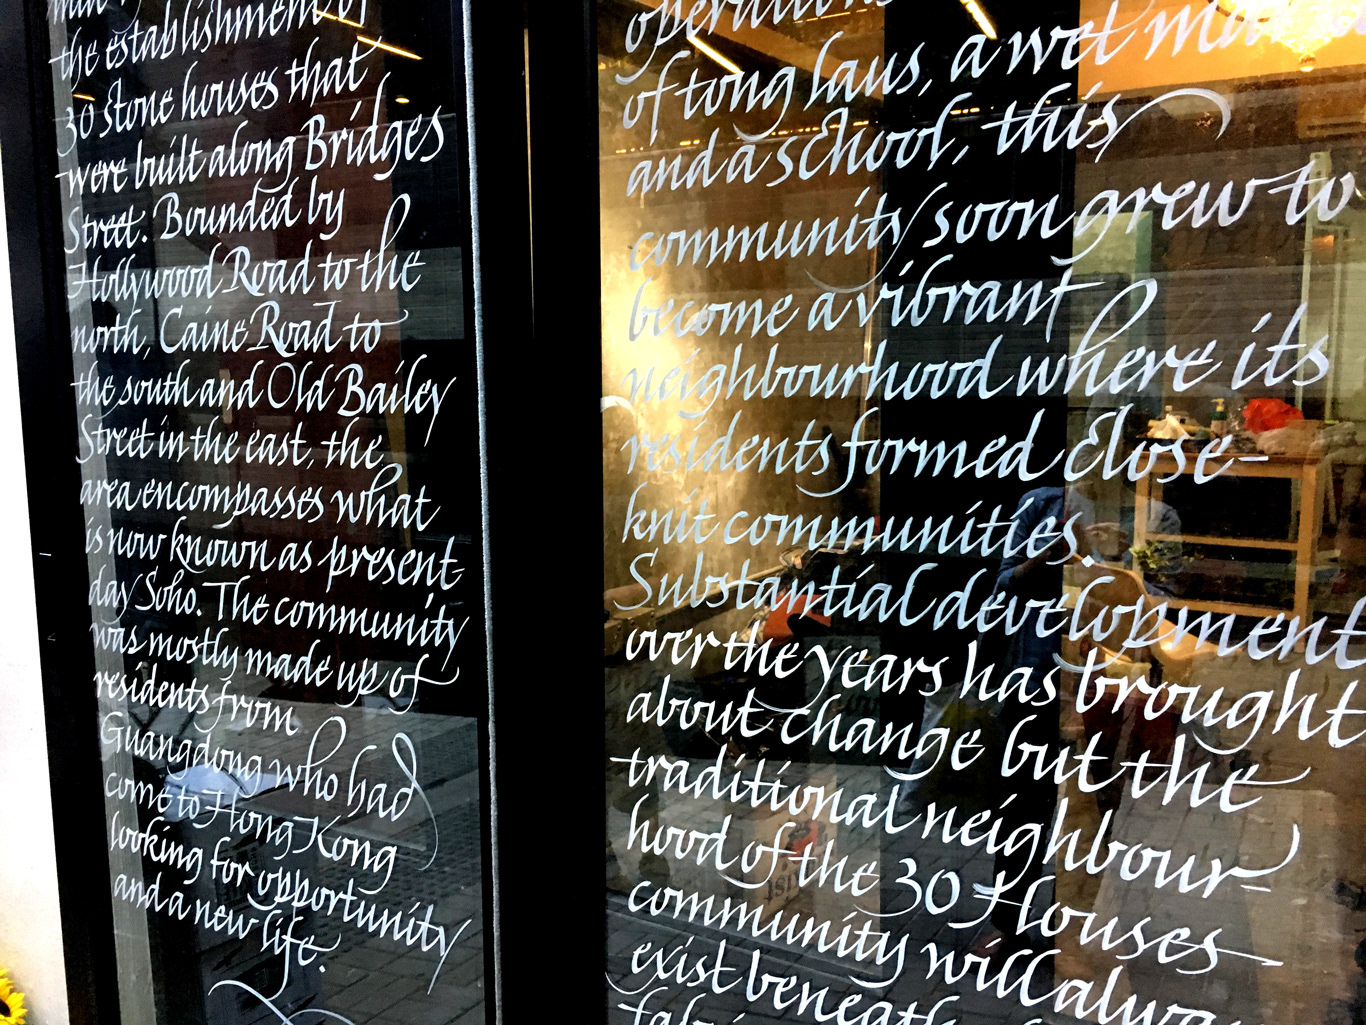 the establishment of
30 stone houses that
were built along Bridges
Street. Bounded by
Hollywood Road to the
north, Caine Road to
the south and Old Bailey
Street in the east, the
area encompasses what
is now known as present-
day Soho. The community
was mostly made up of
residents from
Guangdong who had
come to Hong Kong
looking for opportunity
and a new life.
of tong laus, a wet
and a school, this
community soon grew to
become a vibrant
neighbourhood where its
residents formed close-
knit communities.
Substantial development
over the years has brought
about change but the
traditional neighbour-
hood of the 30 Houses
community will
exist beneath